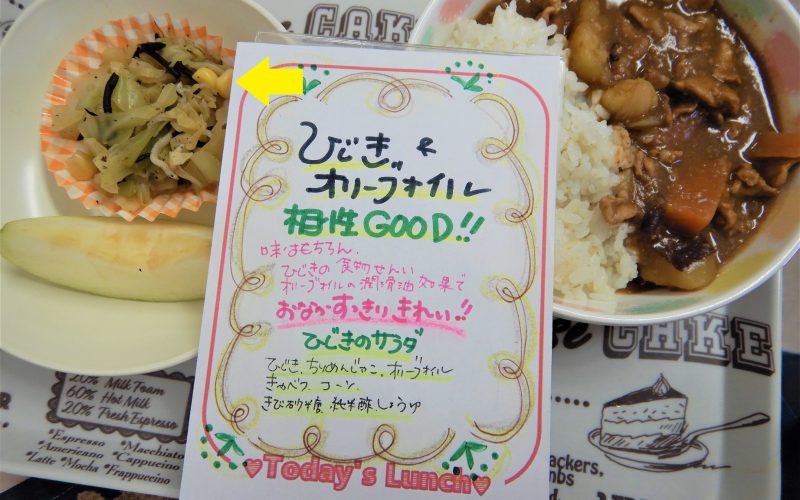 CAKE
ひじき &
オリーブオイル
相性GOOD!!
味はもちろん、
ひじきの食物せんい
オリーブオイルの潤滑油効果で
おなかすっきりきれい!!
ひじきのサラダ
ひじき、ちりめんじゃこ、オリーブオイル
きゃべつ、コーン、
きび砂糖、純米酢、しょうゆ
Today's Lunch
CAKE
20% Milk Foam
60% Hot Milk
20% Fresh Espresso
*Espresso *Macchiato
*Americano *Cappucino
*Latte *Mocha *Frappuccino